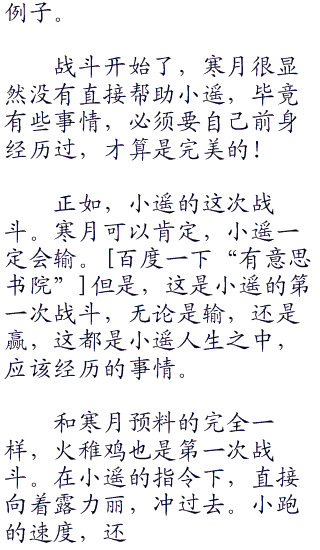 例子。
战斗开始了，寒月很显
然没有直接帮助小遥，毕竟
有些事情，必须要自己前身
经历过，才算是完美的！
正如，小遥的这次战
斗。寒月可以肯定，小遥一
定会输。[百度一下“有意思
书院”]但是，这是小遥的第
一次战斗，无论是输，还是
赢，这都是小遥人生之中，
应该经历的事情。
和寒月预料的完全一
样，火稚鸡也是第一次战
斗。在小遥的指令下，直接
向着露力丽，冲过去。小跑
的速度，还